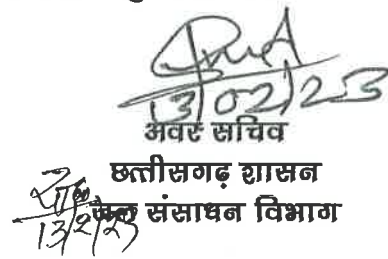 13/02/23
अवर सचिव
छत्तीसगढ़ शासन
जल संसाधन विभाग
13/2/23